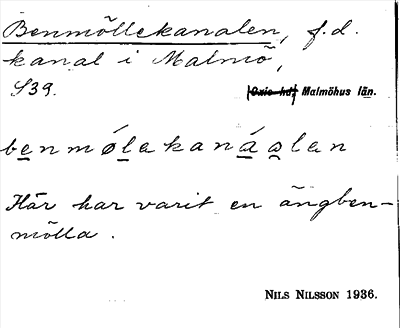 Benmöllekanalen, f.d.
kanal i Malmö,
S39. [Oxie hd] Malmöhus län.
benmølekanáalen
Här har varit en ängben-
mölla.
NILS NILSSON 1936.